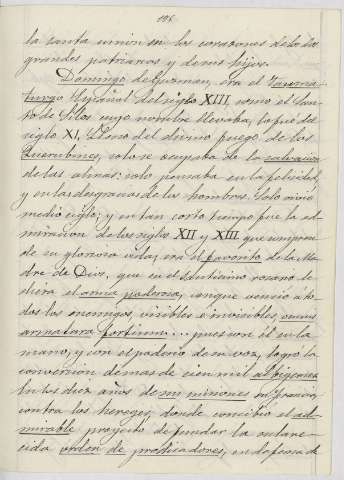 106.
la santa union en los corazones de los dos
grandes patriarcas y de sus hijos.
Domingo de Guzman, era el Tauma-
turgo Español del siglo XIII como el San-
to de Silos cuyo nombre llevaba, lo fue del
siglo XI, lleno del divino fuego de los
Querubines, solo se ocupaba de la salvacion
de las almas: solo pensaba en la felicidad
y en las desgracias de los hombres. Solo vivió
medio siglo; y en tan corto tiempo fue la ad-
miracion de los siglos XII y XIII que
de su gloriosa vida; era el favorito de la Ma-
dre de Dios, que en el Santisimo rosario le
diera el arma poderosa, con que venció a to-
dos los enemigos, visibles e invisibles, omnis
armatura fortium... pues con él en la
mano, y con el poderio de su voz, logro la
conversion de mas de cien mil albigenses
en los diez años de sus misiones en Francia,
contra los hereges; donde concibio el ad-
mirable proyecto de fundar la esclare-
cida orden de predicadores, en defensa de